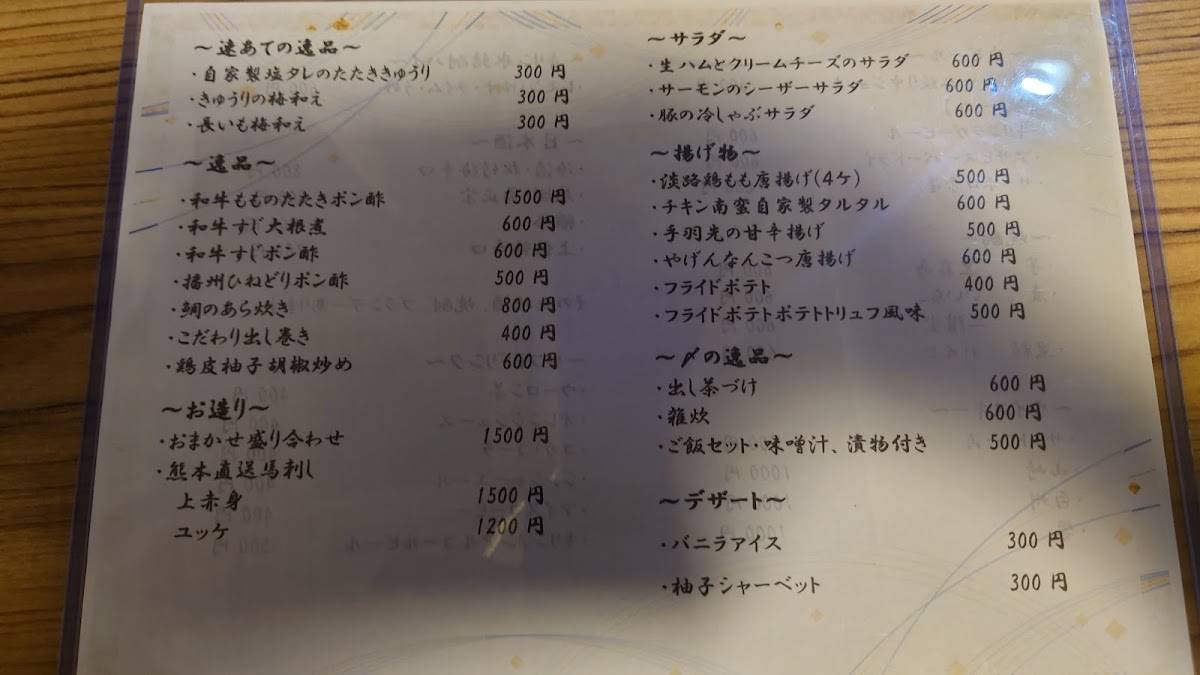 ～速あての逸品～
・自家製塩タレのたたききゅうり 300 円
・きゅうりの梅和え 300 円
・長いも梅和え 300 円
～逸品～
・和牛もものたたきポン酢 1500 円
・和牛すじ大根煮 600 円
・和牛すじポン酢 600 円
・播州ひねどりポン酢 500 円
・鯛のあら炊き 800 円
・こだわり出し巻き 400 円
・鶏皮柚子胡椒炒め 600 円
～お造り～
・おまかせ盛り合わせ 1500 円
・熊本直送馬刺し
上赤身 1500 円
ユッケ 1200 円
～サラダ～
・生ハムとクリームチーズのサラダ 600 円
・サーモンのシーザーサラダ 600 円
・豚の冷しゃぶサラダ 600 円
～揚げ物～
・淡路鶏もも唐揚げ(4ケ) 500 円
・チキン南蛮自家製タルタル 600 円
・手羽先の甘辛揚げ 500 円
・やげんなんこつ唐揚げ 600 円
・フライドポテト 400 円
・フライドポテトポテトトリュフ風味 500 円
～〆の逸品～
・出し茶づけ 600 円
・雑炊 600 円
・ご飯セット・味噌汁、漬物付き 500 円
～デザート～
・バニラアイス 300 円
・柚子シャーベット 300 円